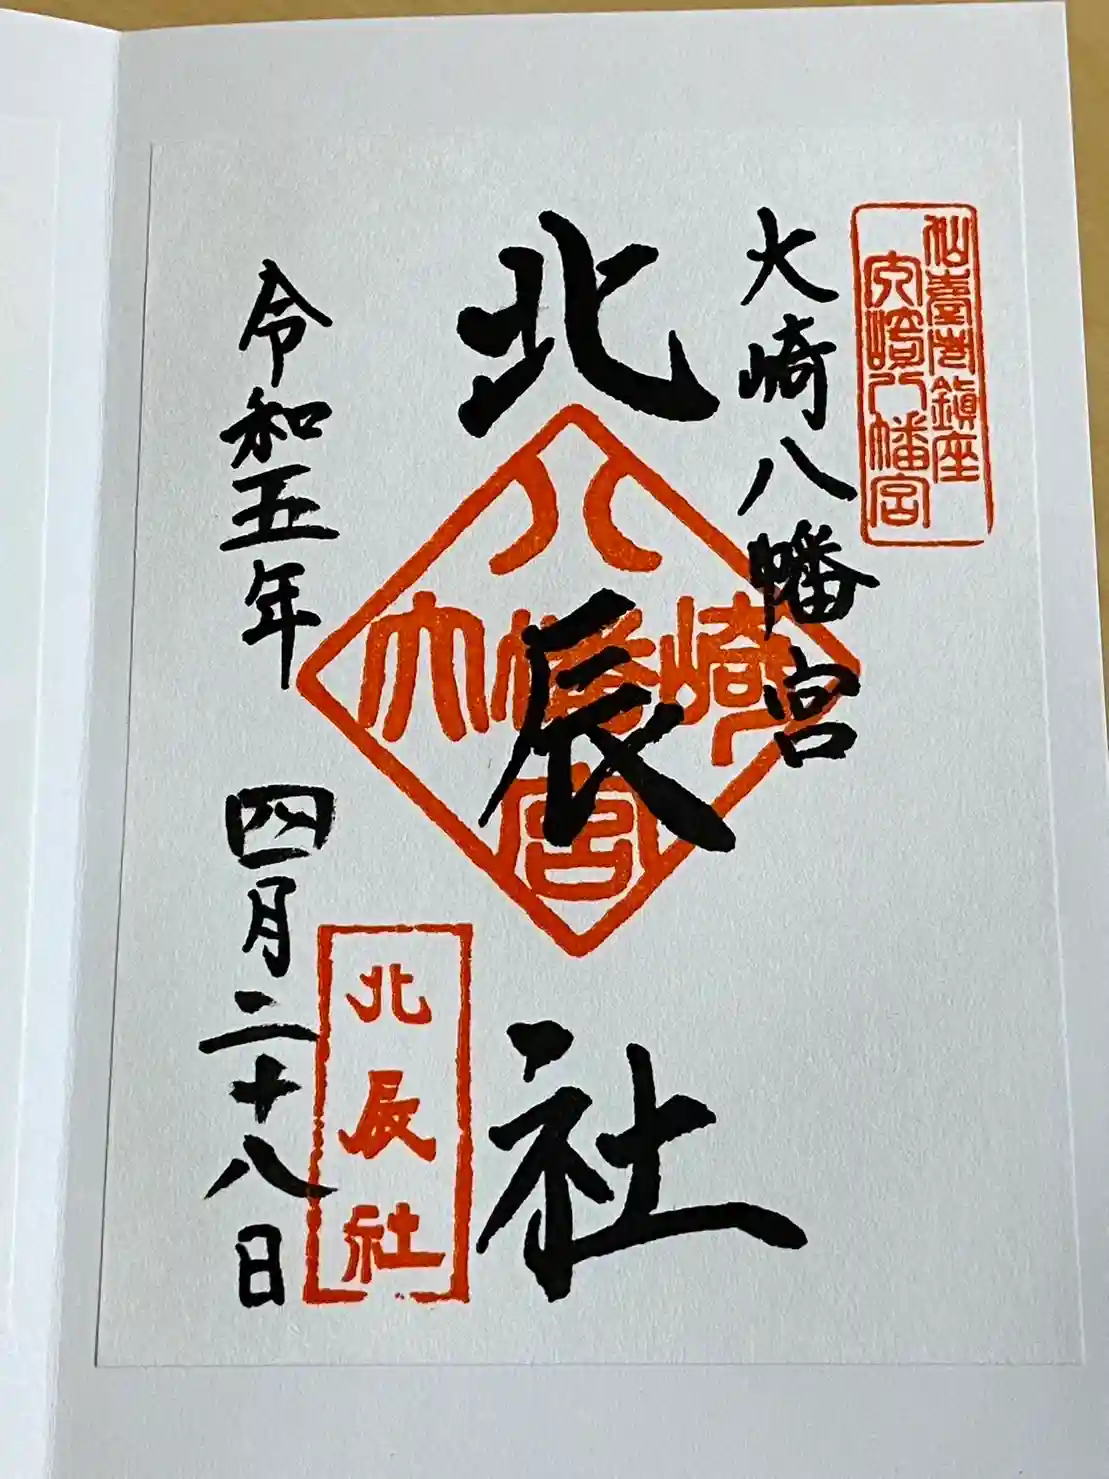 仙臺市鎮座
大崎八幡宮
大崎八幡宮
北辰社
八
大幡崎
宮
北辰社
令和五年四月二十八日